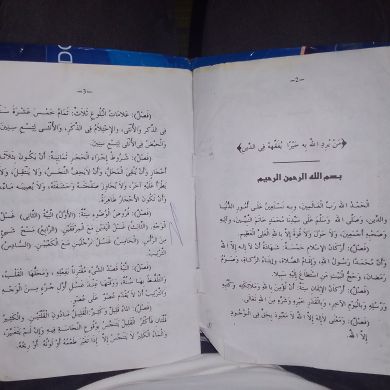 -٢-
﴿مَنْ يُرِدِ اللهُ بِهِ خَيْرًا يُفَقِّهْهُ فِي الدِّينِ﴾
بسم الله الرحمن الرحيم
الْحَمْدُ لِلَّهِ رَبِّ الْعَالَمِينَ، وَبِهِ نَسْتَعِينُ عَلَى أُمُورِ الدُّنْيَا
وَالدِّينِ، وَصَلَّى اللهُ وَسَلَّمَ عَلَى سَيِّدِنَا مُحَمَّدٍ خَاتَمِ النَّبِيِّينَ، وَآلِهِ
وَصَحْبِهِ أَجْمَعِينَ، وَلَا حَوْلَ وَلَا قُوَّةَ إِلَّا بِاللهِ الْعَلِيِّ الْعَظِيمِ.
(فَصْلٌ): أَرْكَانُ الْإِسْلَامِ خَمْسَةٌ: شَهَادَةُ أَنْ لَا إِلَهَ إِلَّا اللهُ
وَأَنَّ مُحَمَّدًا رَسُولُ اللهِ، وَإِقَامُ الصَّلَاةِ، وَإِيتَاءُ الزَّكَاةِ، وَصَوْمُ
رَمَضَانَ، وَحَجُّ الْبَيْتِ مَنِ اسْتَطَاعَ إِلَيْهِ سَبِيلًا.
(فَصْلٌ): أَرْكَانُ الْإِيمَانِ سِتَّةٌ: أَنْ تُؤْمِنَ بِاللهِ وَمَلَائِكَتِهِ وَكُتُبِهِ
وَرُسُلِهِ وَبِالْيَوْمِ الْآخِرِ، وَبِالْقَدَرِ خَيْرِهِ وَشَرِّهِ مِنَ اللهِ تَعَالَى.
(فَصْلٌ): وَمَعْنَى لَا إِلَهَ إِلَّا اللهُ: لَا مَعْبُودَ بِحَقٍّ فِي الْوُجُودِ
إِلَّا اللهُ.
-٣-
(فَصْلٌ): عَلَامَاتُ الْبُلُوغِ ثَلَاثٌ: تَمَامُ خَمْسَ عَشْرَةَ سَنَةً
فِي الذَّكَرِ وَالْأُنْثَى، وَالِاحْتِلَامُ فِي الذَّكَرِ، وَالْأُنْثَى لِتِسْعِ سِنِينَ
وَالْحَيْضُ فِي الْأُنْثَى لِتِسْعِ سِنِينَ.
(فَصْلٌ): شُرُوطُ إِجْزَاءِ الْحَجَرِ ثَمَانِيَةٌ: أَنْ يَكُونَ بِثَلَاثَةِ
أَحْجَارٍ وَأَنْ يُنْقِيَ الْمَحَلَّ، وَأَنْ لَا يَجِفَّ النَّجِسُ، وَلَا يَنْتَقِلَ، وَلَا
يَطْرَأَ عَلَيْهِ آخَرُ، وَلَا يُجَاوِزَ صَفْحَتَهُ وَحَشَفَتَهُ، وَلَا يُصِيبَهُ مَاءٌ،
وَأَنْ تَكُونَ الْأَحْجَارُ طَاهِرَةً.
(فَصْلٌ): فُرُوضُ الْوُضُوءِ سِتَّةٌ: (الْأَوَّلُ) النِّيَّةُ (الثَّانِي) غَسْلُ
الْوَجْهِ (الثَّالِثُ) غَسْلُ الْيَدَيْنِ مَعَ الْمِرْفَقَيْنِ (الرَّابِعُ) مَسْحُ شَيْءٍ
مِنَ الرَّأْسِ (الْخَامِسُ) غَسْلُ الرِّجْلَيْنِ مَعَ الْكَعْبَيْنِ (السَّادِسُ)
التَّرْتِيبُ.
(فَصْلٌ): النِّيَّةُ قَصْدُ الشَّيْءِ مُقْتَرِنًا بِفِعْلِهِ، وَمَحَلُّهَا الْقَلْبُ،
وَالتَّلَفُّظُ بِهَا سُنَّةٌ، وَوَقْتُهَا عِنْدَ غَسْلِ أَوَّلِ جُزْءٍ مِنَ الْوَجْهِ
وَالتَّرْتِيبُ أَنْ لَا يُقَدِّمَ عُضْوًا عَلَى عُضْوٍ.
(فَصْلٌ): الْمَاءُ قَلِيلٌ وَكَثِيرٌ؛ الْقَلِيلُ مَا دُونَ الْقُلَّتَيْنِ، وَالْكَثِيرُ
قُلَّتَانِ فَأَكْثَرُ. الْقَلِيلُ يَتَنَجَّسُ بِوُقُوعِ النَّجَاسَةِ فِيهِ وَإِنْ لَمْ يَتَغَيَّرْ،
وَالْمَاءُ الْكَثِيرُ لَا يَتَنَجَّسُ إِلَّا إِذَا تَغَيَّرَ طَعْمُهُ أَوْ لَوْنُهُ أَوْ رِيحُهُ.
DO